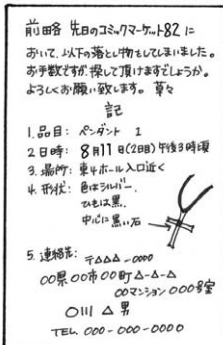 前略 先日のコミックマーケット82に
おいて、以下の落とし物をしてしまいました。
お手数ですが、探して頂けますでしょうか。
よろしくお願い致します。草々
記
1.品目：ペンダント 1
2 日時：8月11日(2日目)午後3時頃
3.場所：東4ホール入口近く
4.形状：色はシルバー、
ひもは黒、
中心に黒い石
5.連絡先：〒△△△-0000
○○県○○市○○町△-△-△
○○マンション000号室
○川△男
TEL.000-000-0000